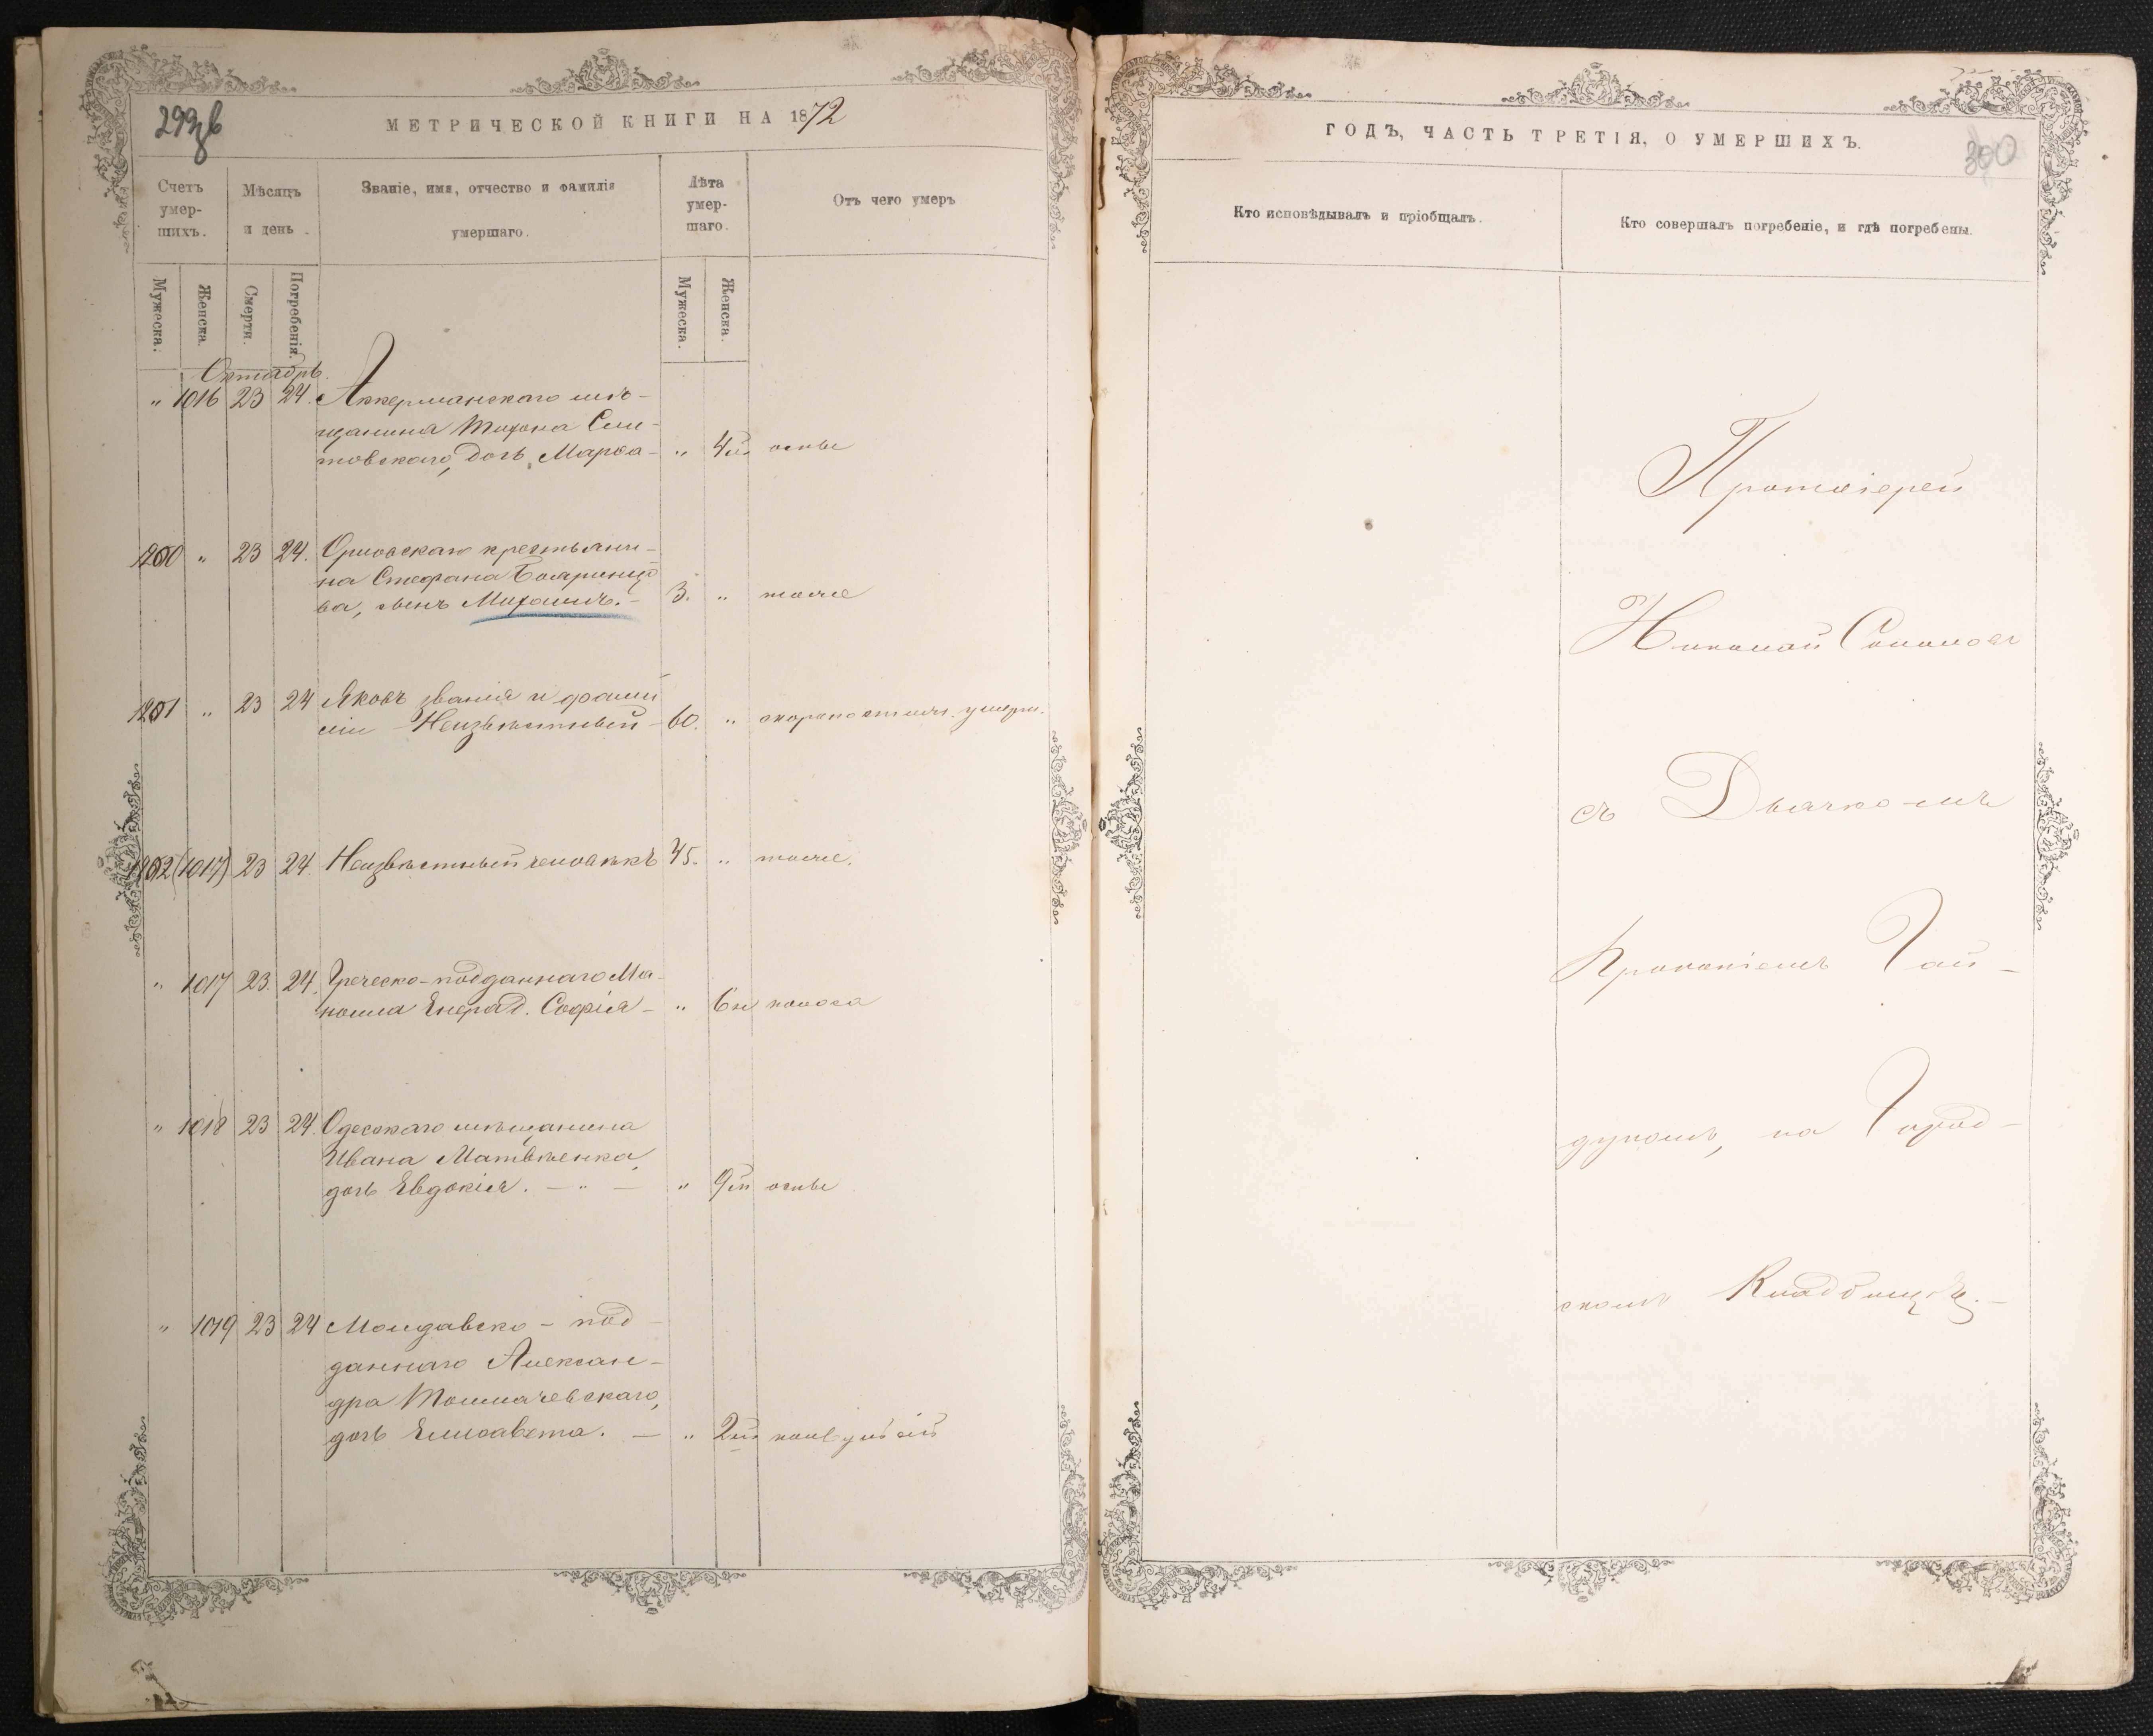 299зв
МЕТРИЧЕСКОЙ КНИГИ НА 1872
Счетъ умер-шихъ.
Мѣсяцъ и день.
Званіе, имя, отчество и фамилія умершаго.
Лѣта умер-шаго.
Отъ чего умеръ
Мужеска.
Женска.
Смерти.
Погребенія.
Мужеска.
Женска.
Октябрь.
" 1016 23 24. Аккерманскаго мѣ-
щанина Тихона
товскаго, дочь Марѳа - " 4 м оспы
1200 " 23 24. Орловскаго крестьяни-
на Стефана Бояринцо
ва, сынъ Михаилъ. - 3. " тоже
1201 " 23 24 Яковъ званія и фами
ліи - Неизвѣстный - 60. " скоропостижн. умерш.
1202 (1017) 23 24. Неизвѣстный человѣкъ 45. " тоже.
" 1017 23. 24. Греческо-подданнаго Ма-
нолла д. Софія - " 6 н поноса
" 1018 23 24. Одесскаго мѣщанина
Ивана Матвѣенка,
дочь Евдокія. - " - " 9 м оспы
" 1019 23 24 Молдавско - под
даннаго Алексан-
дра Толмачевскаго,
дочь Елисавета. - " 2 м конвульсій
ГОДЪ, ЧАСТЬ ТРЕТІЯ, О УМЕРШИХЪ.
300
Кто исповѣдывалъ и пріобщалъ.
Кто совершалъ погребеніе, и гдѣ погребены.
Протоіерей
Николай Соколовъ
съ Дьячкомъ
Прокопіемъ Гай-
дукомъ, на Город-
скомъ Кладбищѣ. -